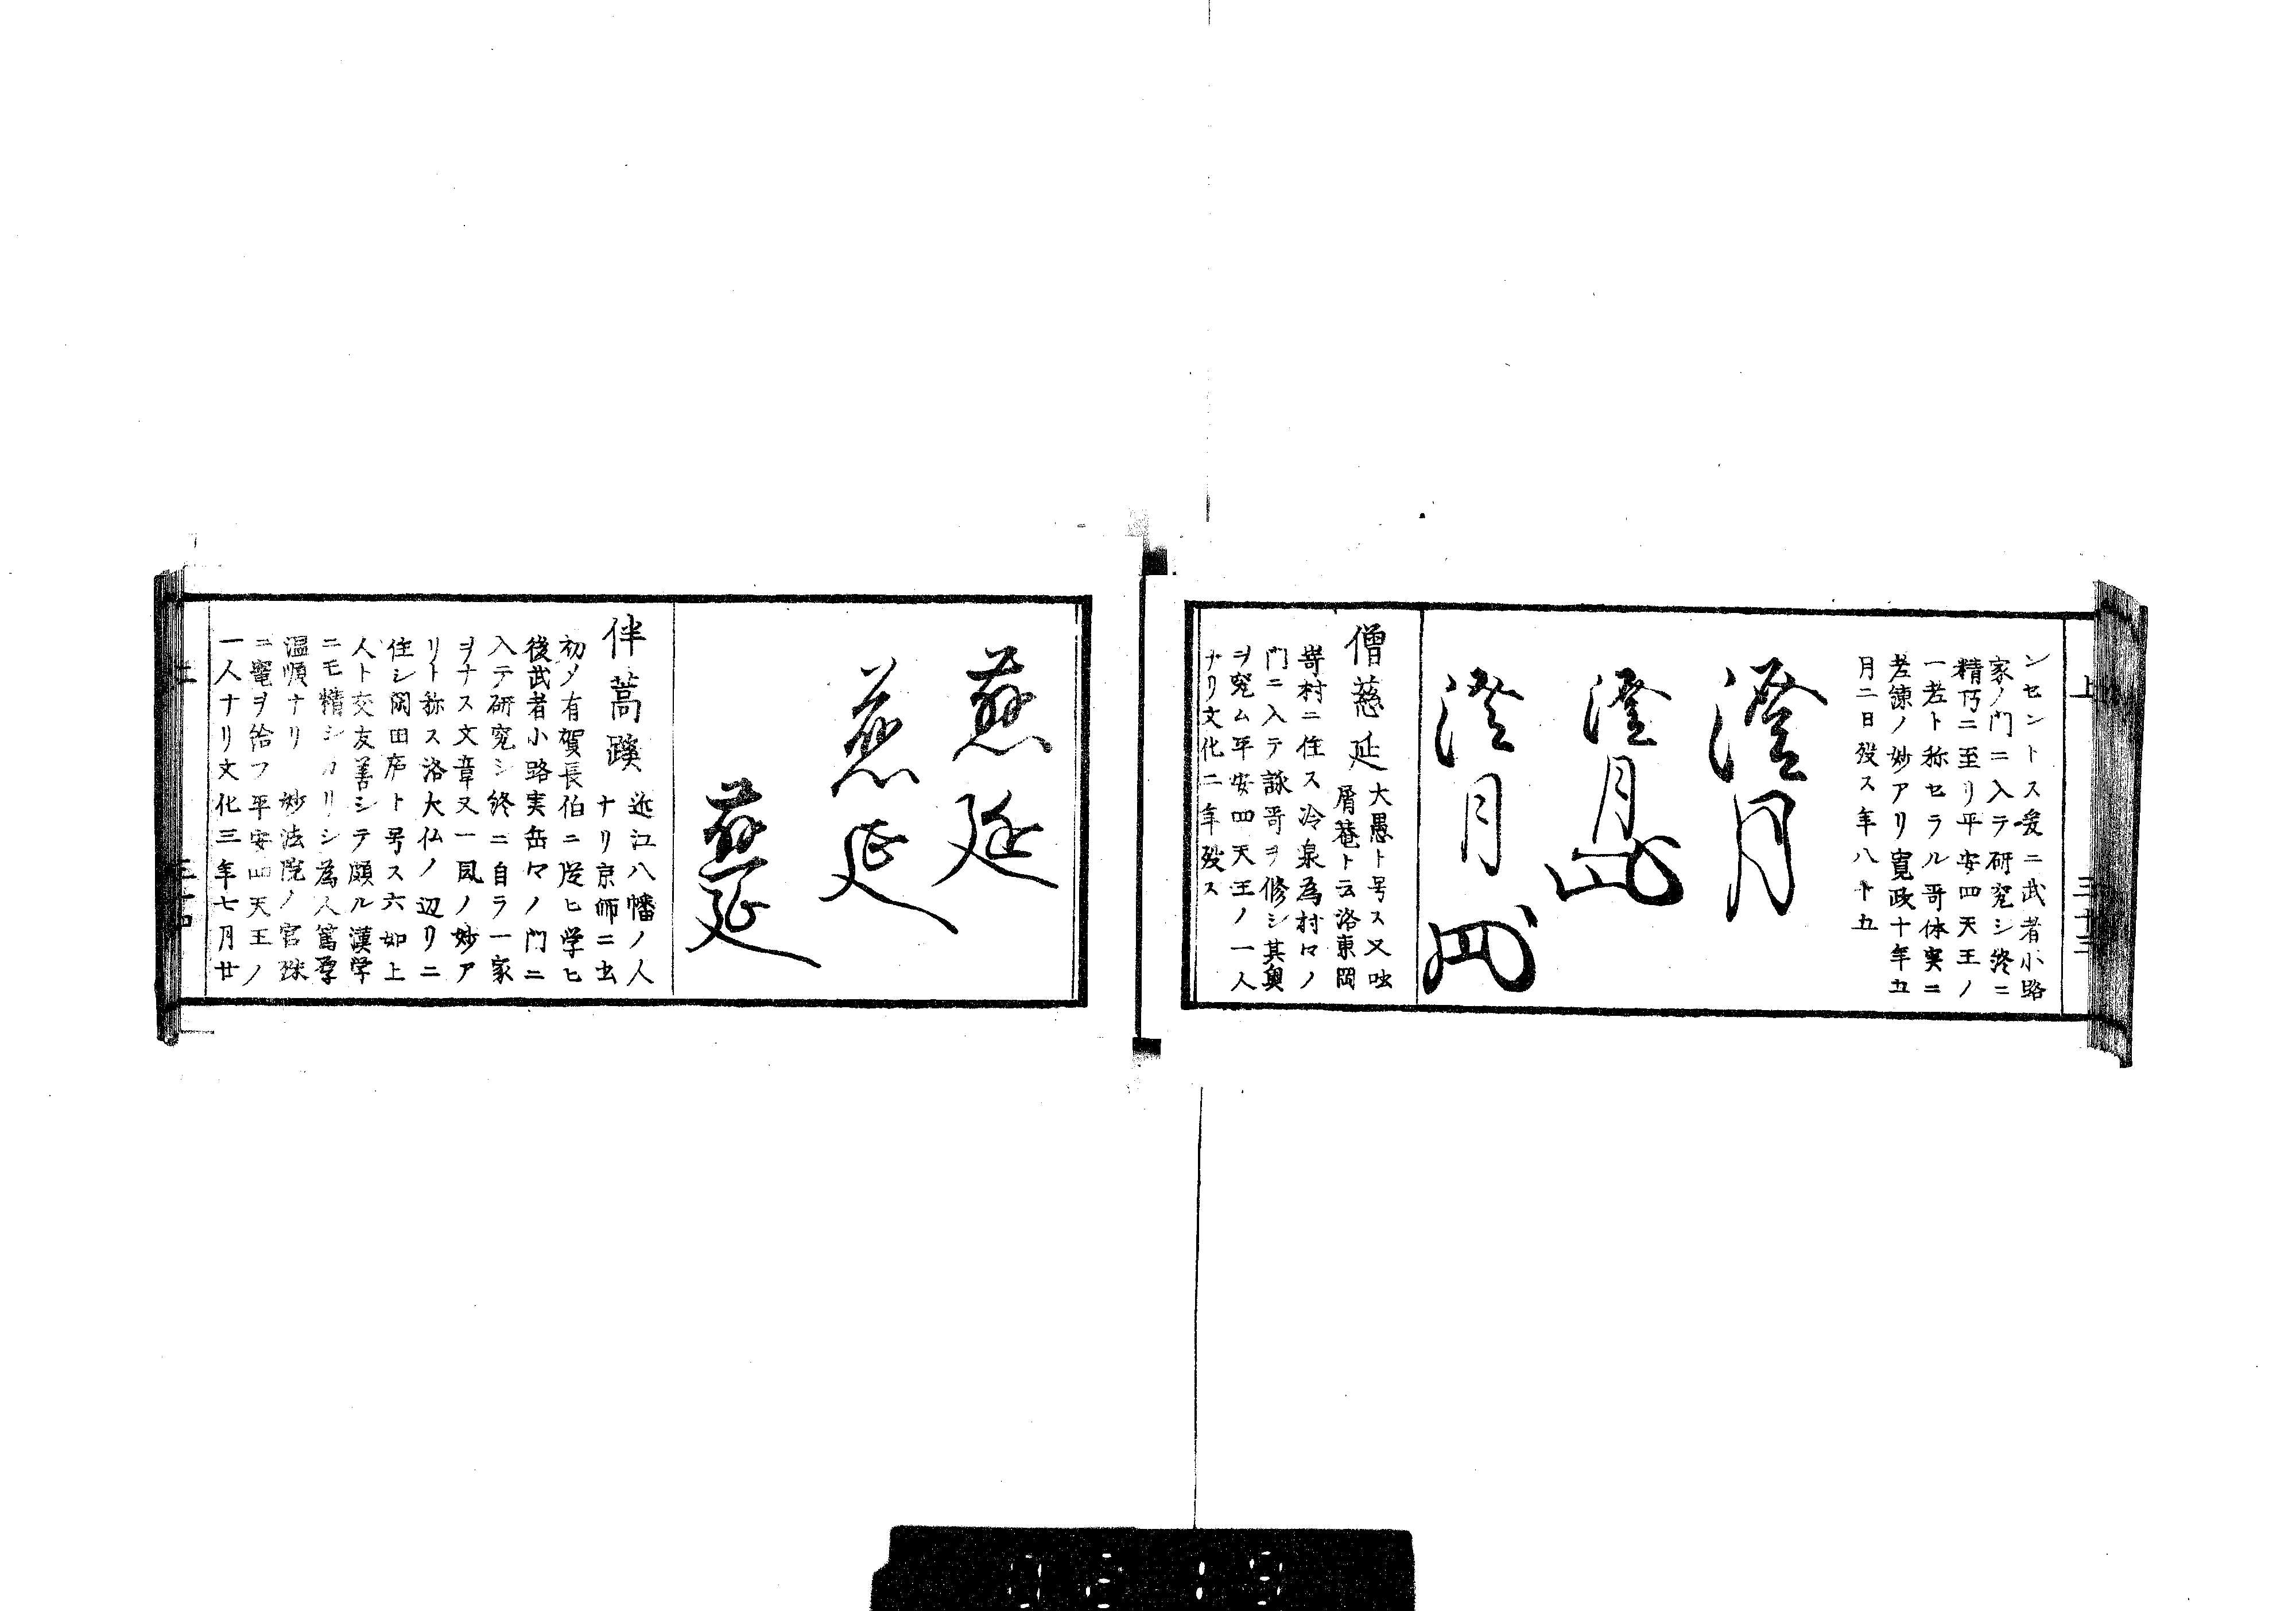 上 三十三
ンセントス爰ニ武者小路
家ノ門ニ入テ研究シ終ニ
精巧ニ至リ平安四天王ノ
一老ト称セラル哥体実ニ
老錬ノ妙アリ寛政十年五
月二日歿ス年八十五
澄月
澄月
澄月
僧慈延
大愚ト号ス又吐
屑菴ト云洛東岡
嵜村ニ住ス冷泉為村々ノ
門ニ入テ詠哥ヲ修シ其奥
ヲ究ム平安四天王ノ一人
ナリ文化二年歿ス
慈延
慈延
慈延
伴蒿蹊
近江八幡ノ人
ナリ京師ニ出
初メ有賀長伯ニ従ヒ学ヒ
後武者小路実岳々ノ門ニ
入テ研究シ終ニ自ラ一家
ヲナス文章又一風ノ妙ア
リト称ス洛大仏ノ辺リニ
住シ閑田庐ト号ス六如上
人ト交友善シテ頗ル漢学
ニモ精シカリシ為人篤孝
温順ナリ 妙法院ノ宮殊
ニ寵ヲ給フ平安四天王ノ
一人ナリ文化三年七月廿
上 三十四